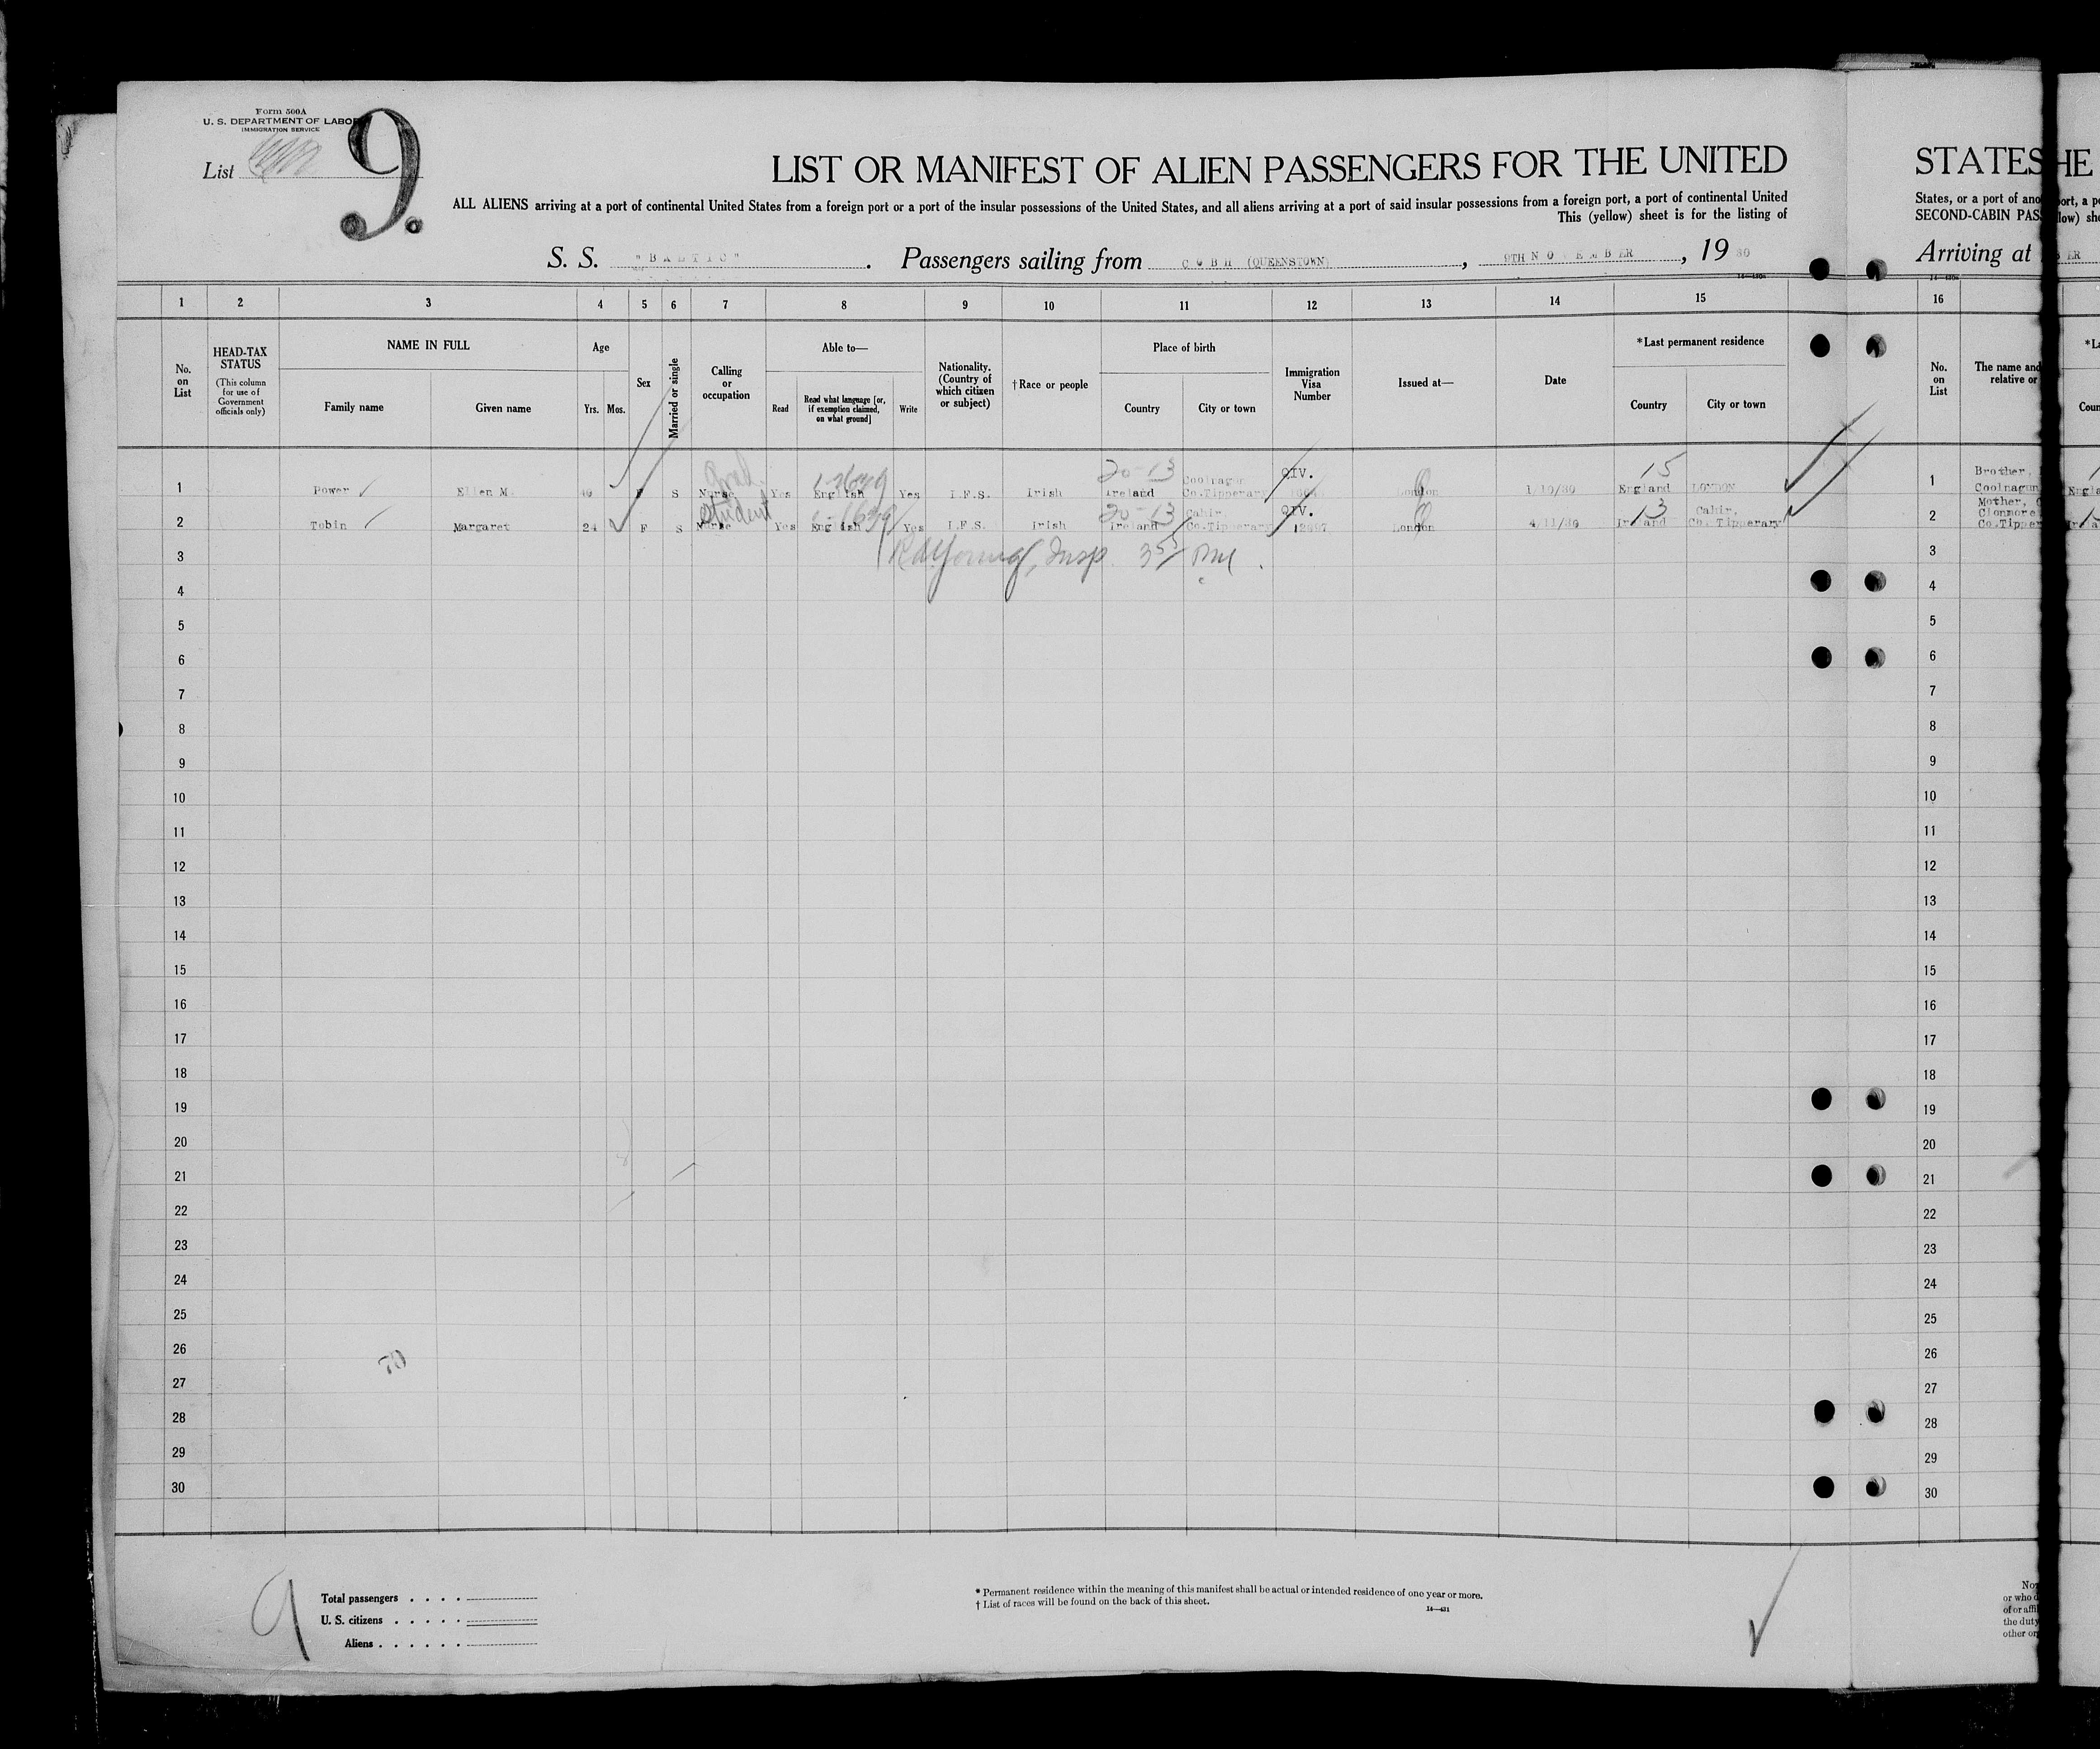 Form 500A
U. S. DEPARTMENT OF LABOR
IMMIGRATION SERVICE
List 9.
LIST OR MANIFEST OF ALIEN PASSENGERS FOR THE UNITED
ALL ALIENS arriving at a port of continental United States from a foreign port or a port of the insular possessions of the United States, and all aliens arriving at a port of said insular possessions from a foreign port, a port of continental United
This (yellow) sheet is for the listing of
S. S. "BALTIC". Passengers sailing from COBH (QUEENSTOWN), 9TH NOVEMBER, 1930
STATES
States, or a port of ano
SECOND-CABIN PAS
Arriving at
HE
ort, a p
low) she
BER
1 2 3 4 5 6 7 8 9 10 11 12 13 14 15 16
No. on List
HEAD-TAX STATUS
(This column for use of Government officials only)
NAME IN FULL
Family name Given name
Age
Yrs. Mos.
Sex
Married or single
Calling or occupation
Able to—
Read
Read what language [or, if exemption claimed, on what ground]
Write
Nationality. (Country of which citizen or subject)
†Race or people
Place of birth
Country City or town
Immigration Visa Number
Issued at—
Date
*Last permanent residence
Country City or town
No. on List
The name and
relative or
*La
Coun
Grad. 1-2639 20-13 Coolnagun QIV. 15
1 Power Ellen M. F S Nurse Yes English Yes I.F.S. Irish Ireland Co.Tipperary London 1/10/30 England LONDON
Student 20-13 Cahir, QIV. 13 Cahir,
2 Tobin Margaret 24 F S Nurse Yes English Yes I.F.S. Irish Ireland Co.Tipperary London 4/11/30 Ireland Co. Tipperary
Young, Insp.
1 Brother,
Coolnagun
2 Mother,
Clonmore
Co.Tipper
Engla
Irela
3
4
5
6
7
8
9
10
11
12
13
14
15
16
17
18
19
20
21
22
23
24
25
26
27
28
29
30
3
4
5
6
7
8
9
10
11
12
13
14
15
16
17
18
19
20
21
22
23
24
25
26
27
28
29
30
70
9
Total passengers
U. S. citizens
Aliens
* Permanent residence within the meaning of this manifest shall be actual or intended residence of one year or more.
† List of races will be found on the back of this sheet.
14—431
No
or who d
of or affil
the duty
other or